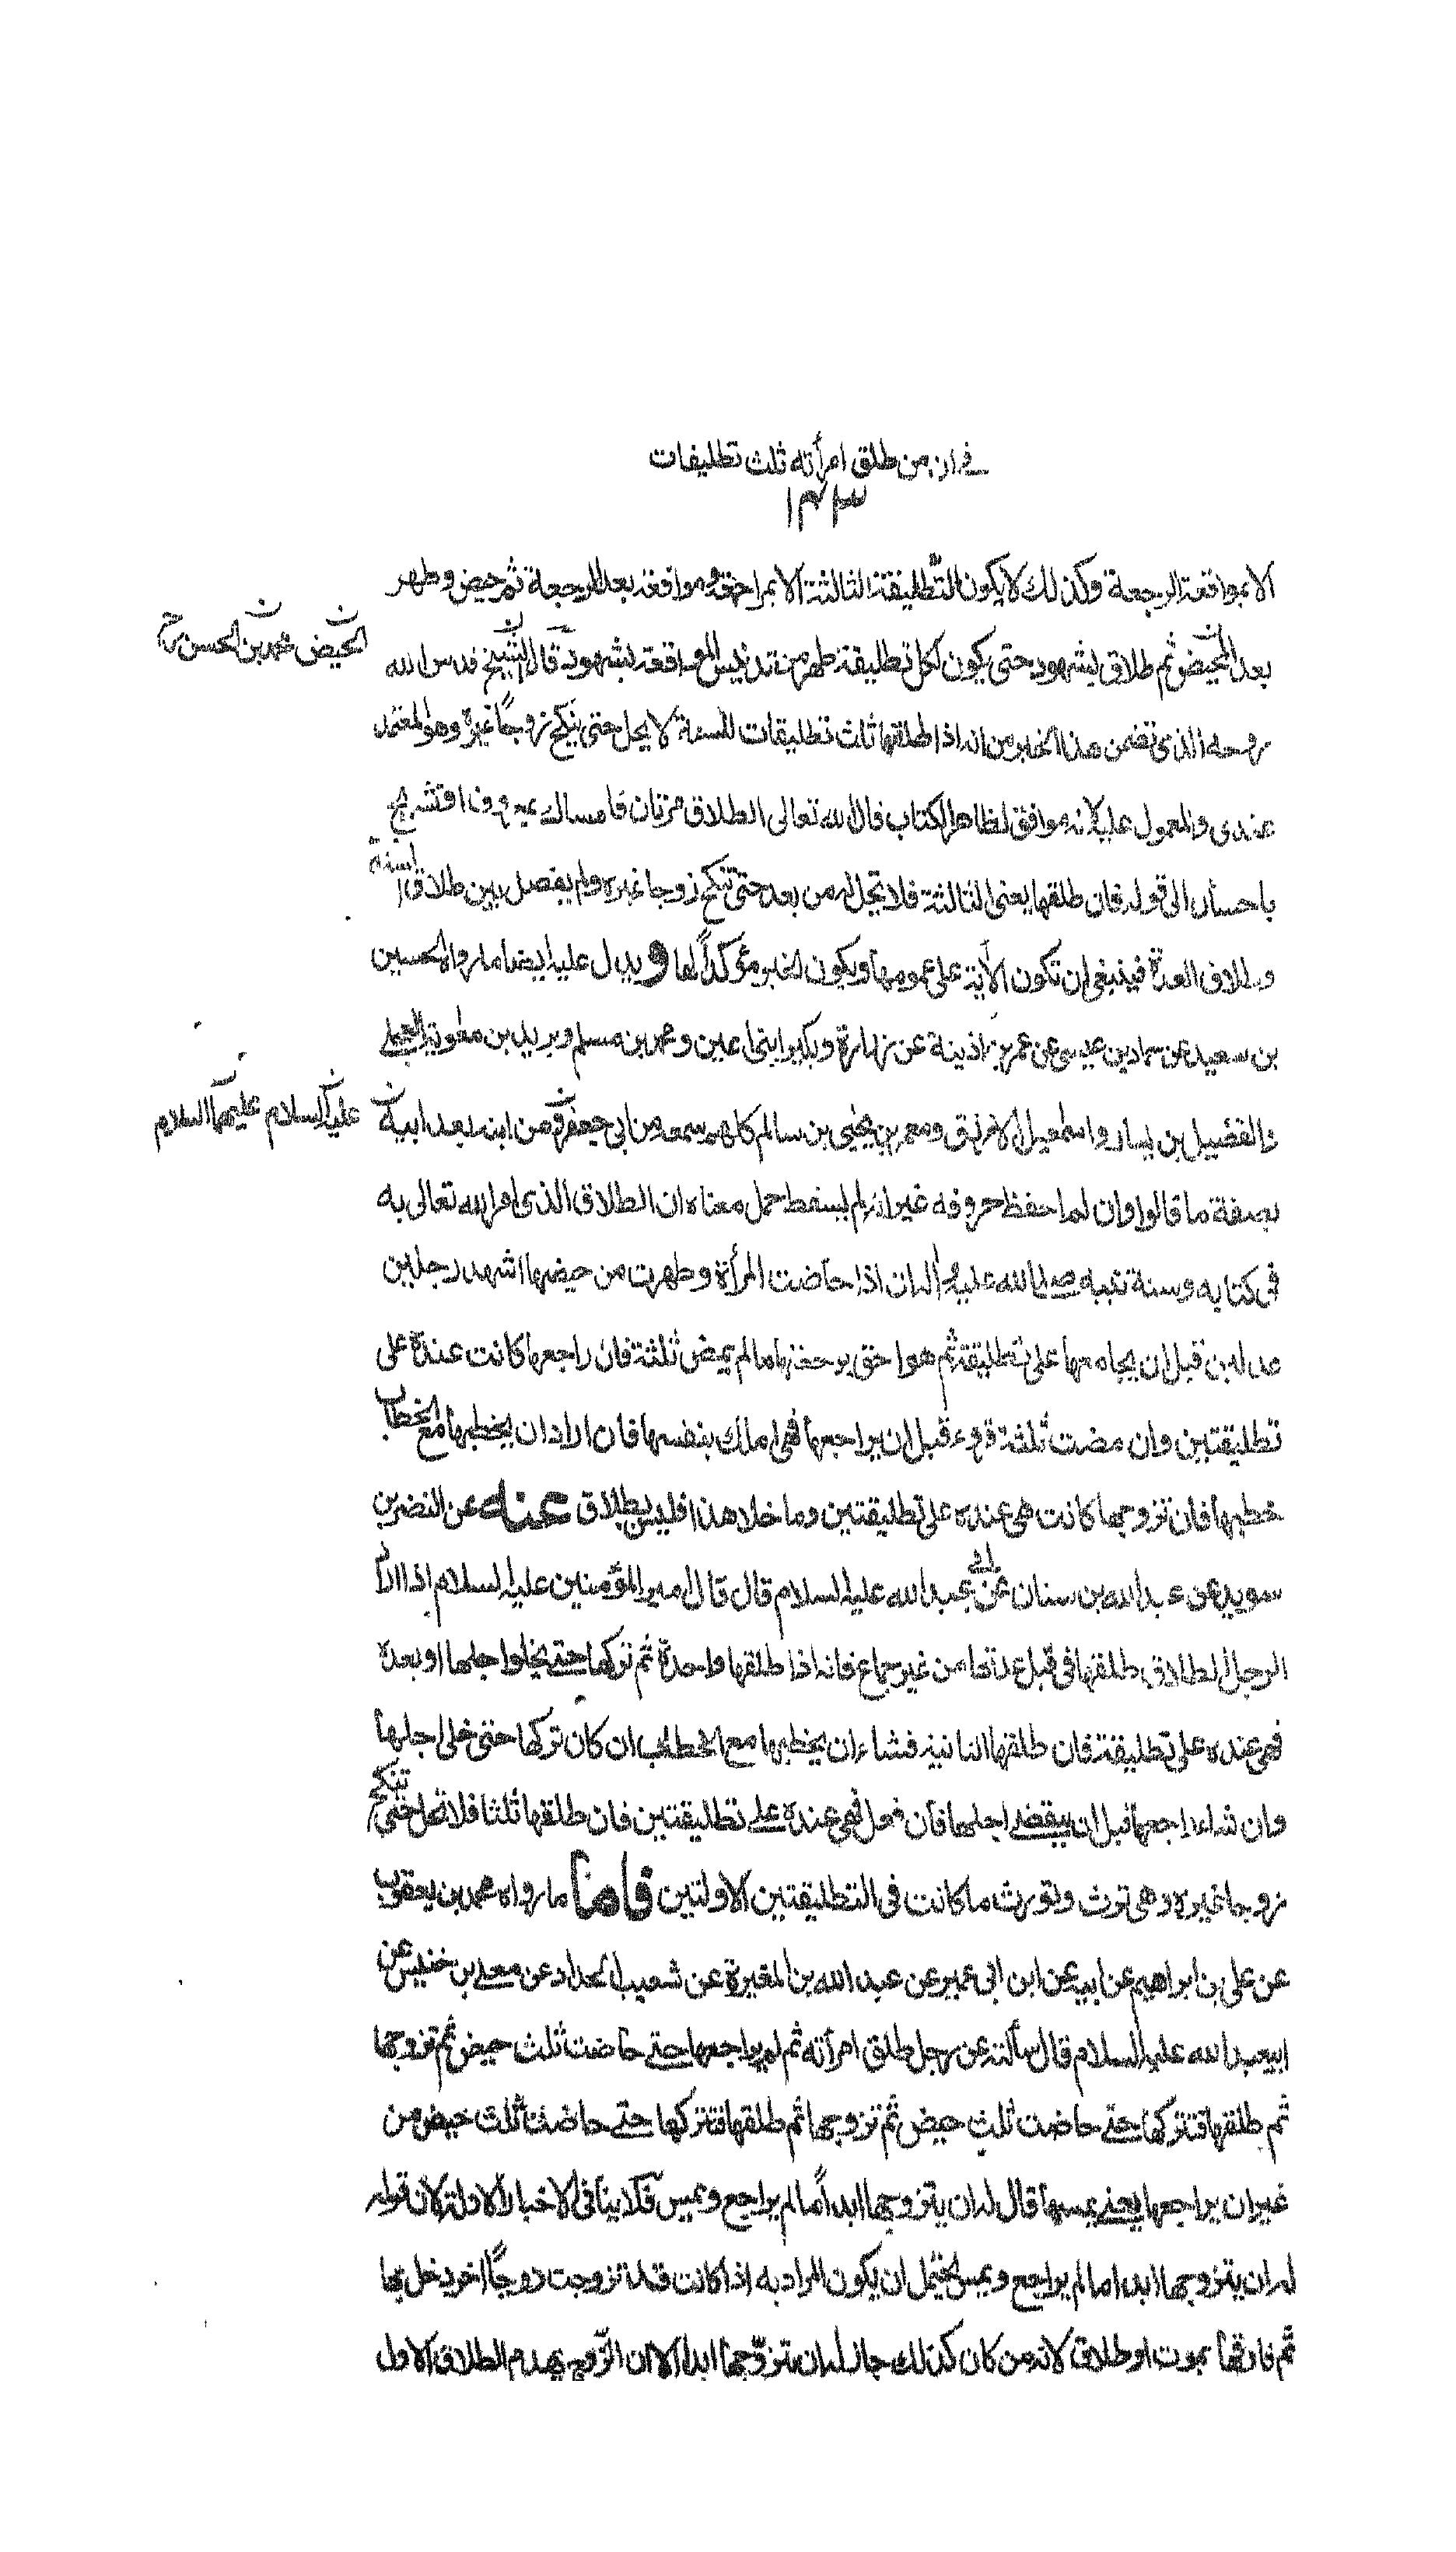 في ان من طلق امرأته ثلث تطليقات
١٣٣
الا بمواقعة الرجعة وكذلك لا يكون التطليقة الثالثة الا بمراجعة ومواقعة بعد الرجعة ثم حيض وطهر
بعد المحيض ثم طلاق بشهود حتى يكون لكل تطليقة طهر من تدنيس المواقعة بشهود قال الشيخ قدس الله
الحيض محمد بن الحسن رح
روحه الذي تضمن هذا الخبر من انه اذا طلقها ثلث تطليقات للسنة لا يحل حتى ينكح زوجاً غيره وهو المعتمد
عندي والمعمول عليه لانه موافق لظاهر الكتاب قال الله تعالى الطلاق مرتان فامساك بمعروف او تسريح
باحسان الى قوله فان طلقها يعني الثالثة فلا تحل له من بعد حتى تنكح زوجا غيره ولم يفصل بين طلاق السنة
وطلاق العدة فينبغي ان تكون الآية على عمومها ويكون الخبر مؤكداً لها ويدل عليه ايضا ما رواه الحسين
بن سعيد عن حماد بن عيسى عن عمر بن اذينة عن زرارة وبكير ابني اعين ومحمد بن مسلم وبريد بن معوية العجلي
والفضيل بن يسار واسمعيل الازرق ومعمر بن يحيى بن سالم كلهم سمعه من ابي جعفر ومن ابنه بعد ابيه
عليه السلام عليهما السلام
بصفة ما قالوا وان لما حفظ حروفه غير انه لم يسقط حمل معناه ان الطلاق الذي امر الله تعالى به
في كتابه وسنة نبيه صلى الله عليه وآله ان اذا حاضت المرأة وطهرت من حيضها اشهد رجلين
عدلين قبل ان يجامعها على تطليقة ثم هو احق برجعتها ما لم يمض ثلثة فان راجعها كانت عنده على
تطليقتين وان مضت ثلثة قروء قبل ان يراجعها فهي املك بنفسها فان اراد ان يخطبها مع الخطاب
خطبها فان تزوجها كانت هي عنده على تطليقتين وما خلا هذا فليس بطلاق عنه عن النضر بن
سويد عن عبد الله بن سنان عن ابي عبد الله عليه السلام قال قال امير المؤمنين عليه السلام اذا اراد
الرجل الطلاق طلقها في قبل عدتها من غير جماع فانه اذا طلقها واحدة ثم تركها حتى يخلوا اجلها او بعده
فهي عنده على تطليقة فان طلقها الثانية فشاء ان يخطبها مع الخطاب ان كان تركها حتى خلى اجلها
وان شاء راجعها قبل ان ينقضي اجلها فان فعل فهي عنده على تطليقتين فان طلقها ثلثا فلا تحل حتى تنكح
زوجا غيره وهي ترث وتورث ما كانت في التطليقتين الاولتين فاما ما رواه محمد بن يعقوب
عن علي بن ابراهيم عن ابيه عن ابن ابي عمير عن عبد الله بن المغيرة عن شعيب الحداد عن معلى بن خنيس عن
ابي عبد الله عليه السلام قال سألته عن رجل طلق امرأته ثم لم يراجعها حتى حاضت ثلث حيض ثم تزوجها
ثم طلقها فتركها حتى حاضت ثلث حيض ثم تزوجها ثم طلقها فتركها حتى حاضت ثلث حيض من
غير ان يراجعها يعني يمسها قال له ان يتزوجها ابداً ما لم يراجع ويمس فلا ينافي الاخبار الاولة لان قوله
له ان يتزوجها ابدا ما لم يراجع ويمس يحتمل ان يكون المراد به اذا كانت قد تزوجت زوجاً اخر دخل بها
ثم فارقها بموت او طلاق لانه من كان كذلك جاز له ان يتزوجها ابدا لان الزوج يهدم الطلاق الاول